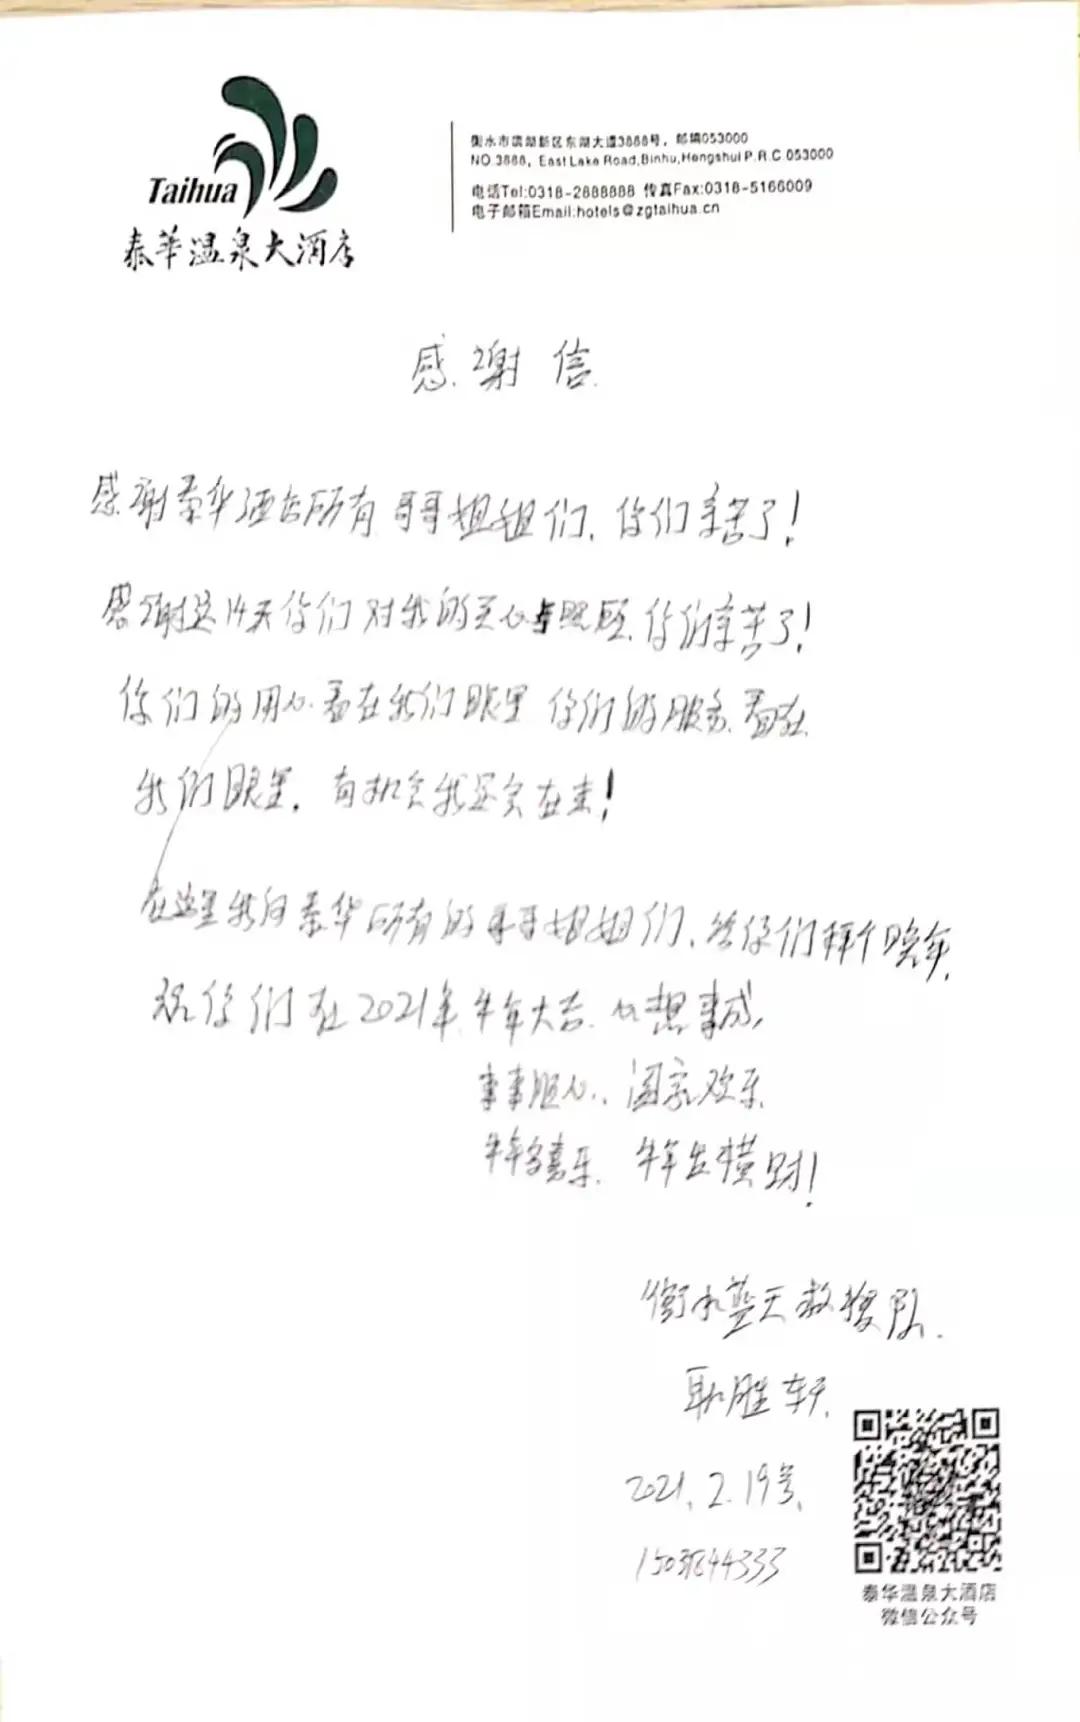 Taihua
泰华温泉大酒店
衡水市滨湖新区东湖大道3888号，邮编053000
NO.3888, East Lake Road,Binhu,Hengshui P.R.C 053000
电话Tel:0318-2888888 传真Fax:0318-5166009
电子邮箱Email:hotels@zgtaihua.cn
感谢信
感谢泰华酒店所有哥哥姐姐们，你们辛苦了！
感谢这14天你们对我的关心与照顾，你们辛苦了！
你们的用心看在我们眼里 你们的服务看在
我们眼里，有机会我还会在来！
在这里我向泰华所有的哥哥姐姐们，给你们拜个晚年，
祝你们在2021年牛年大吉、心想事成，
事事顺心、阖家欢乐
牛年多喜乐、牛年发横财！
衡水蓝天救援队
耿胜轩
2021.2.19号
泰华温泉大酒店
微信公众号